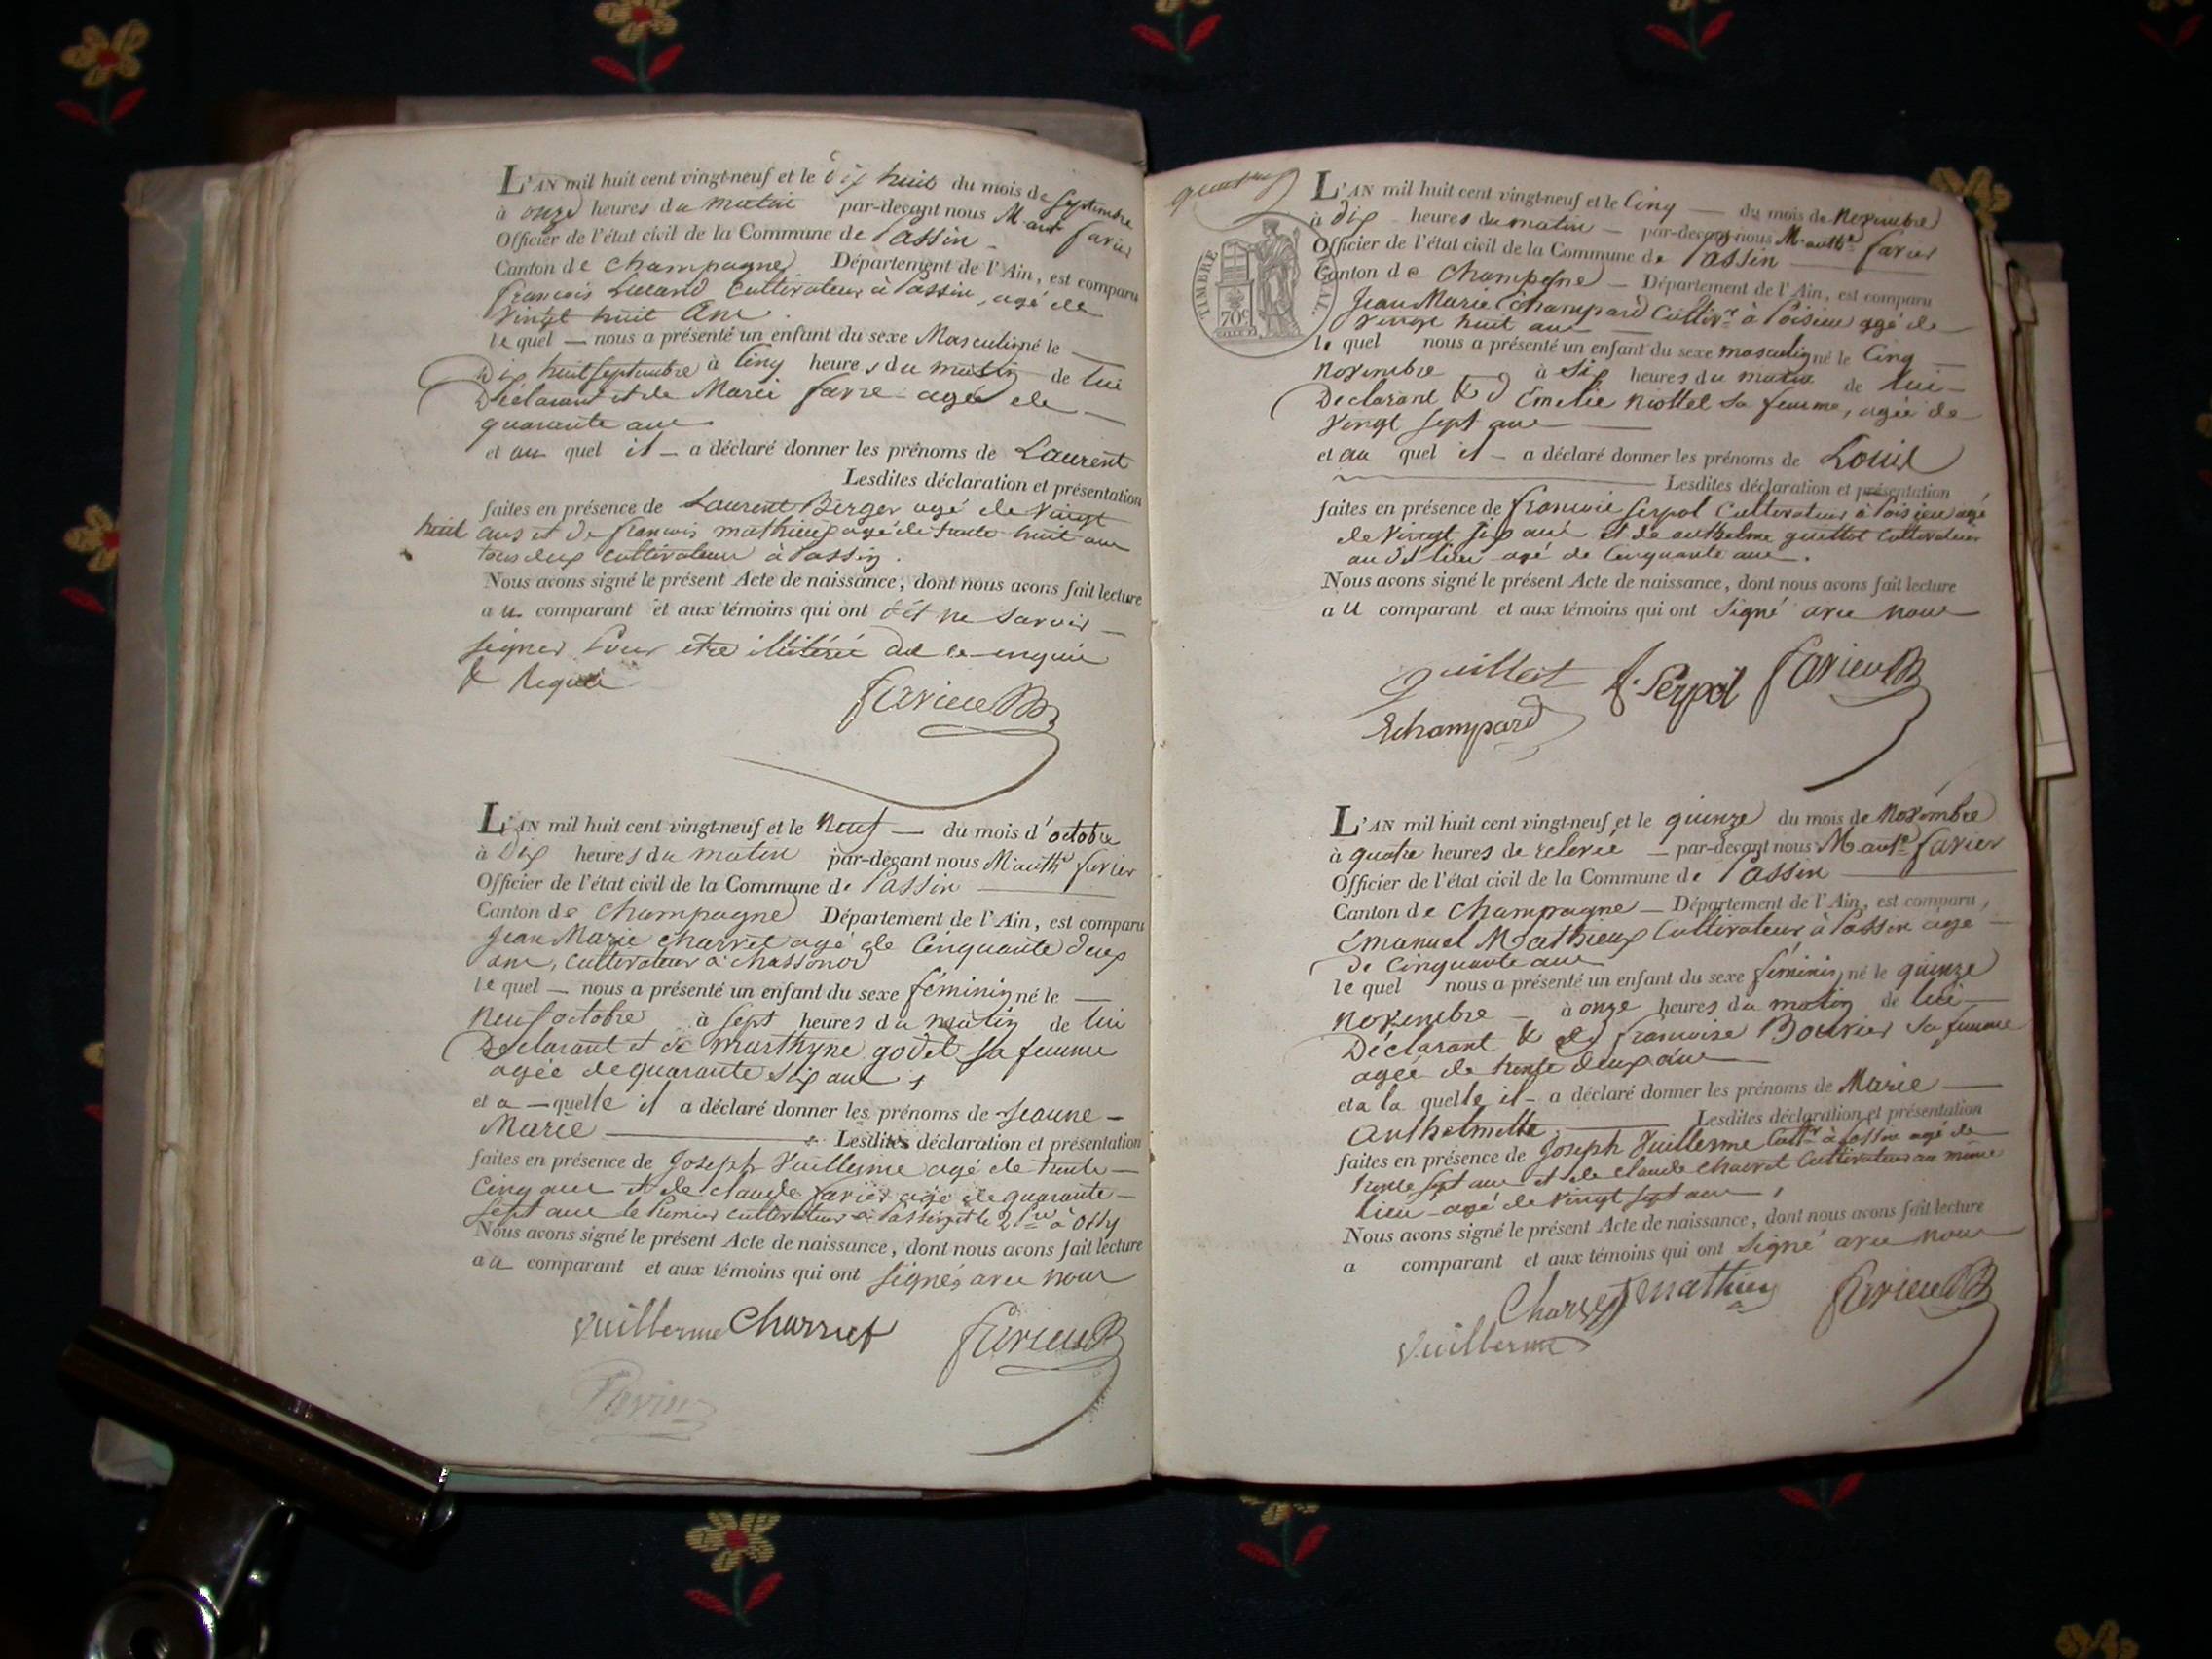 L'AN mil huit cent vingt-neuf et le dix huit du mois de Septembre
à onze heures du matin par-devant nous M. anth favier
Officier de l'état civil de la Commune de Passin
Canton de Champagne Département de l'Ain, est comparu
françois Cultivateur à Passin, agé de
vingt huit Ans
lequel nous a présenté un enfant du sexe Masculin né le
Dix huit Septembre à Cinq heures du matin de lui
Déclarant et de Marie favre agée de
quarante ans
et au quel il a déclaré donner les prénoms de Laurent
Lesdites déclaration et présentation
faites en présence de Laurent Berger agé de vingt
huit ans et de françois mathieux agé de trente huit ans
tous deux cultivateurs à Passin.
Nous avons signé le présent Acte de naissance, dont nous avons fait lecture
au comparant et aux témoins qui ont dit ne savoir
signer Pour etre illitéré de ce enquis
& Requis
favier
L'AN mil huit cent vingt-neuf et le neuf du mois d'octobre
à Dix heures du matin par-devant nous M. anth favier
Officier de l'état civil de la Commune de Passin
Canton de Champagne Département de l'Ain, est comparu
Jean Marie Charvet agé de Cinquante deux
ans, cultivateur à Chassonod
lequel nous a présenté un enfant du sexe féminin né le
neuf octobre à sept heures du matin de lui
Déclarant et de Marthyne godet sa femme
agée de quarante Six ans
et a quelle il a déclaré donner les prénoms de Jeanne
Marie Lesdites déclaration et présentation
faites en présence de Joseph Vuillerme agé de trente
Cinq ans et de claude favier agé de quarante
sept ans le Premier cultivateur à Passin et le 2 à Ossy
Nous avons signé le présent Acte de naissance, dont nous avons fait lecture
au comparant et aux témoins qui ont signés avec nous
Vuillerme Charvet favier
favier
L'AN mil huit cent vingt-neuf et le Cinq du mois de Novembre
à dix heures du matin par-devant nous M. anth favier
Officier de l'état civil de la Commune de Passin
Canton de Champagne Département de l'Ain, est comparu
TIMBRE
70c
Jean Marie Echampard Cultivr à Poisieu agé de
vingt huit ans
le quel nous a présenté un enfant du sexe masculin né le Cinq
Novembre à Six heures du matin de lui
Déclarant & d'Emelie niottet sa femme, agée de
vingt sept ans
et au quel il a déclaré donner les prénoms de Louis
Lesdites déclaration et présentation
faites en présence de françois Serpol Cultivateur à Poisieu agé
de vingt six ans et de anthelme guillot cultivateur
au dt lieu agé de Cinquante ans.
Nous avons signé le présent Acte de naissance, dont nous avons fait lecture
au comparant et aux témoins qui ont Signé avec nous
guillot f. Serpol favier
Echampard
L'AN mil huit cent vingt-neuf et le quinze du mois de Novembre
à quatre heures de relevée par-devant nous M. anthe favier
Officier de l'état civil de la Commune de Passin
Canton de Champagne Département de l'Ain, est comparu,
Emanuel Mathieux Cultivateur à Passin agé
de Cinquante ans
lequel nous a présenté un enfant du sexe féminin né le quinze
Novembre à onze heures du matin de lui
Déclarant & de françoise Bouvier sa femme
agée de trente deux ans
et a la quelle il a déclaré donner les prénoms de Marie
Anthelmette. Lesdites déclaration et présentation
faites en présence de Joseph Vuillerme Cultr à Passin agé de
trente sept ans et de claude Charvet Cultivateur au même
lieu agé de vingt sept ans
Nous avons signé le présent Acte de naissance, dont nous avons fait lecture
a comparant et aux témoins qui ont Signé avec nous
Charvet mathieu favier
Vuillerme